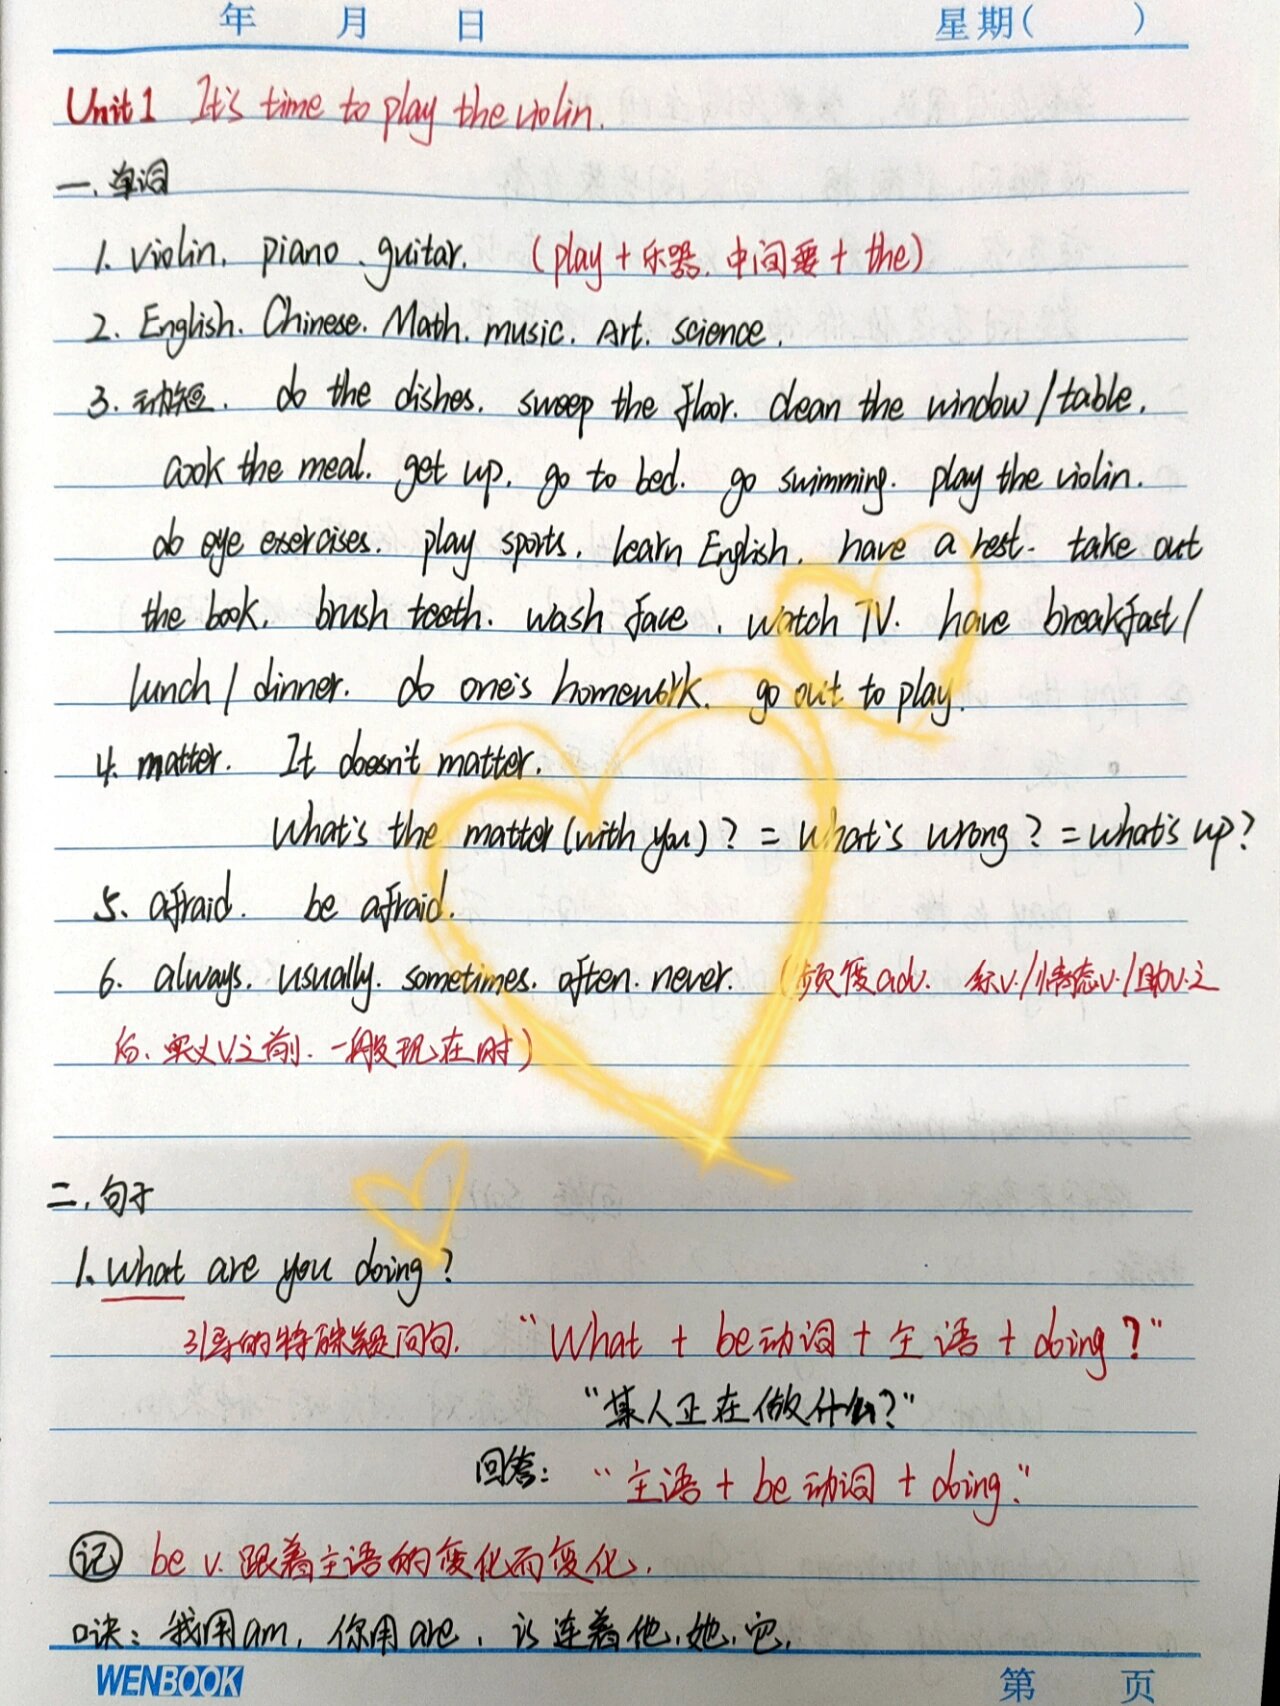 年 月 日 星期( )
Unit 1 It's time to play the violin.
一、单词
1. violin. piano. guitar. (play + 乐器. 中间要 + the)
2. English. Chinese. Math. music. Art. science.
3. 动短. do the dishes. sweep the floor. clean the window / table.
cook the meal. get up. go to bed. go swimming. play the violin.
do eye exercises. play sports. learn English. have a rest. take out
the book. brush teeth. wash face. watch TV. have breakfast /
lunch / dinner. do one's homework. go out to play.
4. matter. It doesn't matter.
What's the matter (with you)? = What's wrong? = what's up?
5. afraid. be afraid.
6. always. usually. sometimes. often. never. (频度adv. 系v./情态v./助v.之
后、实义v.之前. 一般现在时)
二、句子
1. What are you doing?
引导的特殊疑问句. "What + be动词 + 主语 + doing?"
"某人正在做什么?"
回答: "主语 + be动词 + doing."
记 be v. 跟着主语的变化而变化.
口诀: 我用am, 你用are, is 连着他, 她, 它.
WENBOOK 第 页